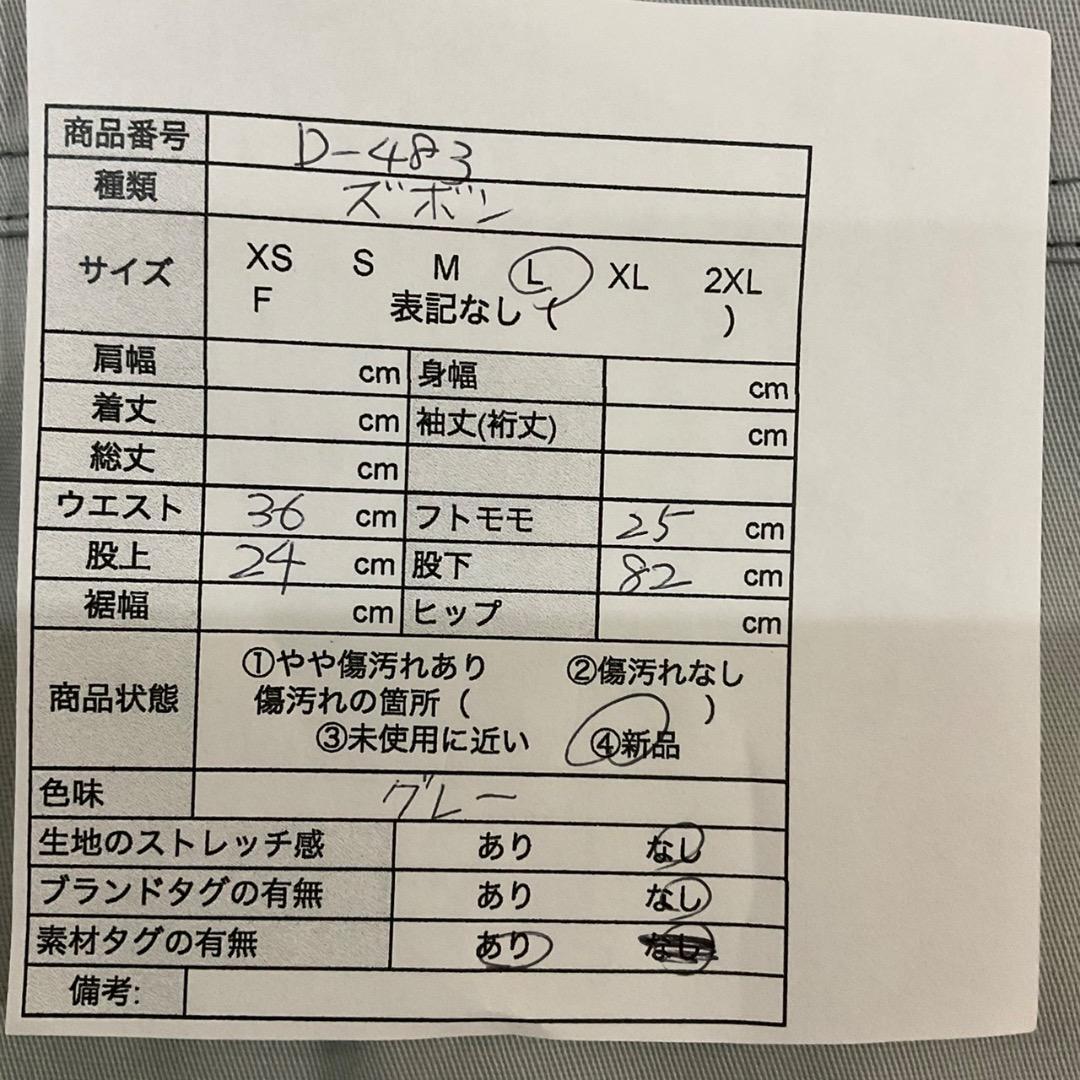 商品番号 D-483
種類 ズボン
サイズ XS S M L XL 2XL
F 表記なし ( )
肩幅 cm 身幅 cm
着丈 cm 袖丈(裄丈) cm
総丈 cm
ウエスト 36 cm フトモモ 25 cm
股上 24 cm 股下 82 cm
裾幅 cm ヒップ cm
商品状態 ①やや傷汚れあり ②傷汚れなし
傷汚れの箇所 ( )
③未使用に近い ④新品
色味 グレー
生地のストレッチ感 あり なし
ブランドタグの有無 あり なし
素材タグの有無 あり なし
備考: